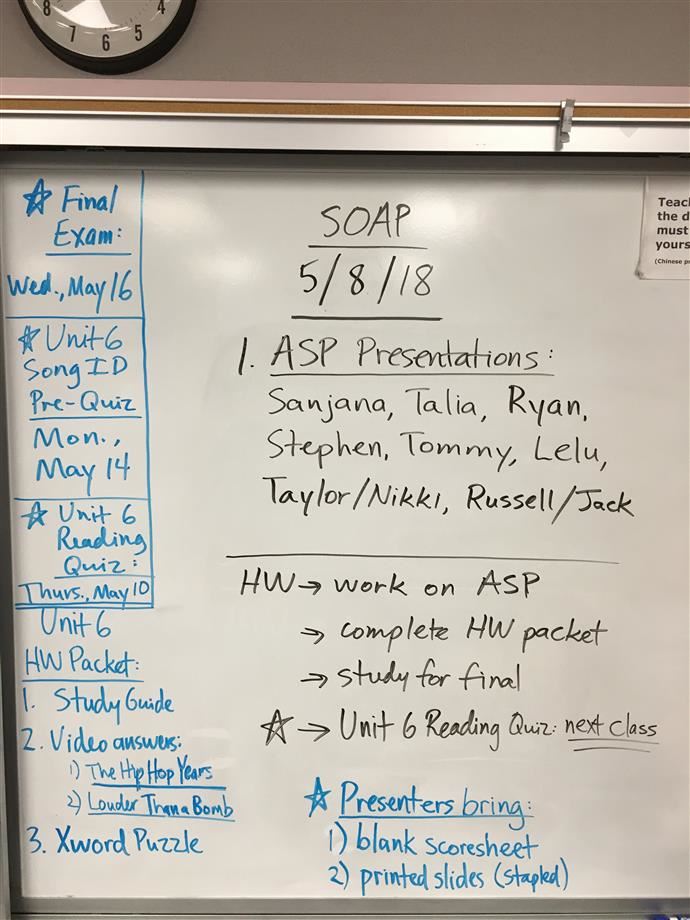 8
7
6
5
4
☆ Final
Exam:
Wed., May 16
☆ Unit 6
Song ID
Pre-Quiz
Mon.,
May 14
☆ Unit 6
Reading
Quiz:
Thurs., May 10
Unit 6
HW Packet:
1. Study Guide
2. Video answers:
1) The Hip Hop Years
2) Louder Than a Bomb
3. Xword Puzzle
SOAP
5/8/18
1. ASP Presentations:
Sanjana, Talia, Ryan,
Stephen, Tommy, Lelu,
Taylor/Nikki, Russell/Jack
HW → work on ASP
→ complete HW packet
→ study for final
☆ → Unit 6 Reading Quiz: next class
☆ Presenters bring:
1) blank scoresheet
2) printed slides (stapled)
the d
must
yours
(Chinese p